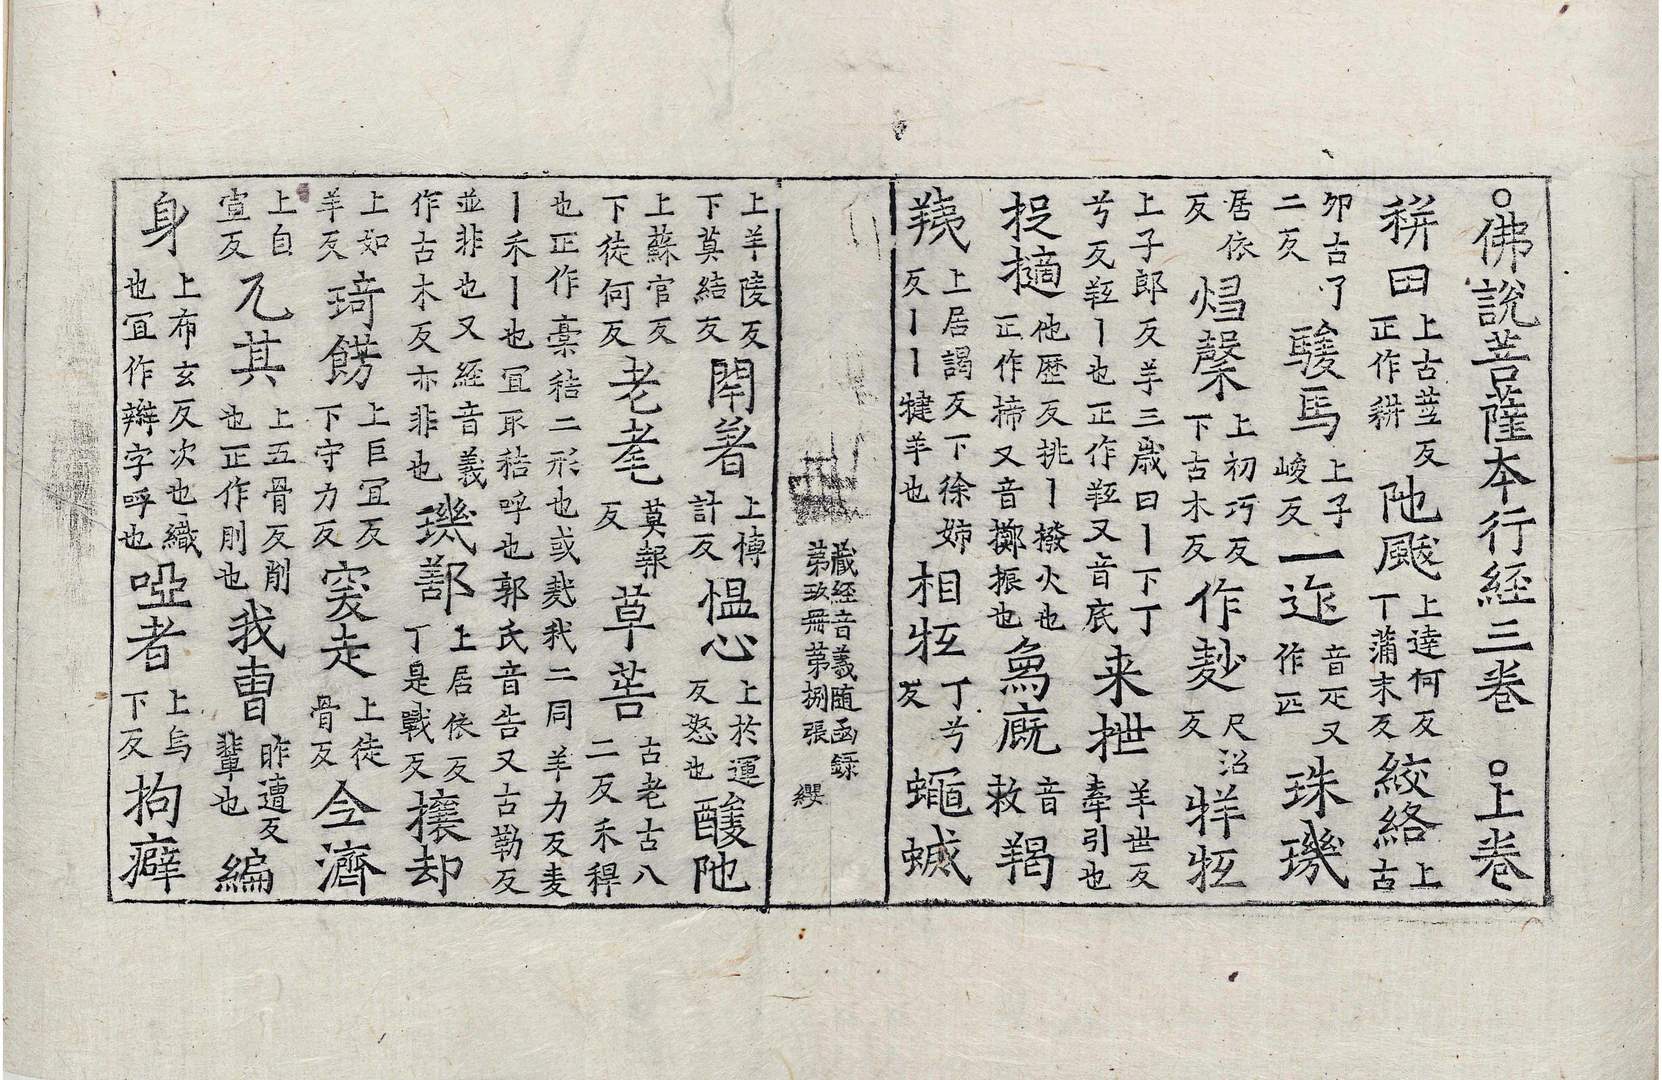 ○佛說菩薩本行經三卷　○上卷
耕田上古莖反正作耕㐌颰上達何反丁蒲末反絞絡上古
卯古了二反騣馬上子峻反一迮音疋又作匹珠璣
居依反焻㷅上初巧反下古木反作麨尺沼反牂羘
上子郎反羊三歲曰丨下丁兮反羘丨也正作羝又音底来抴羊世反牽引也
捉擿他歷反挑丨撥火也正作擿又音擲振也為廐音救羯
羠上居謁反下徐姉反丨丨犍羊也相牴丁兮反蠅蠛
藏經音義随函録
第玖冊第捌張　纓
上羊陵反下莫結反閈著上博計反愠心上於運反怒也酸陁
上蘇官反下徒何反老耄莫報反草䓘古老古八二反禾稈
也正作槀秸二形也或𪍿䅆二同羊力反麦
丨禾丨也冝取秸呼也郭氏音告又古勒反
並非也又經音義作古木反亦非也璣鄯上居依反丁是戰反攘却
上如羊反琦餝上巨冝反下守力反突走上徒骨反今濟
上自宣反兀其上五骨反刖也正作刖也我曺昨遭反輩也編
身上布玄反次也織也冝作辮字呼也啞者上烏下反拘癖